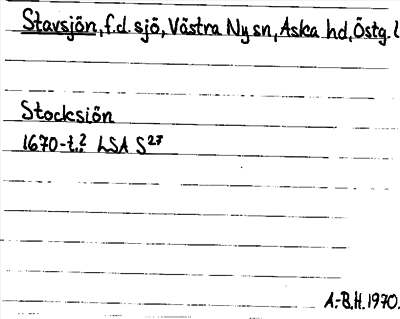 Stavsjön, f.d. sjö, Västra Ny sn, Aska hd, Östg. l
Stocksiön
1670-t.? LSA S27
A.-B.H. 1970.